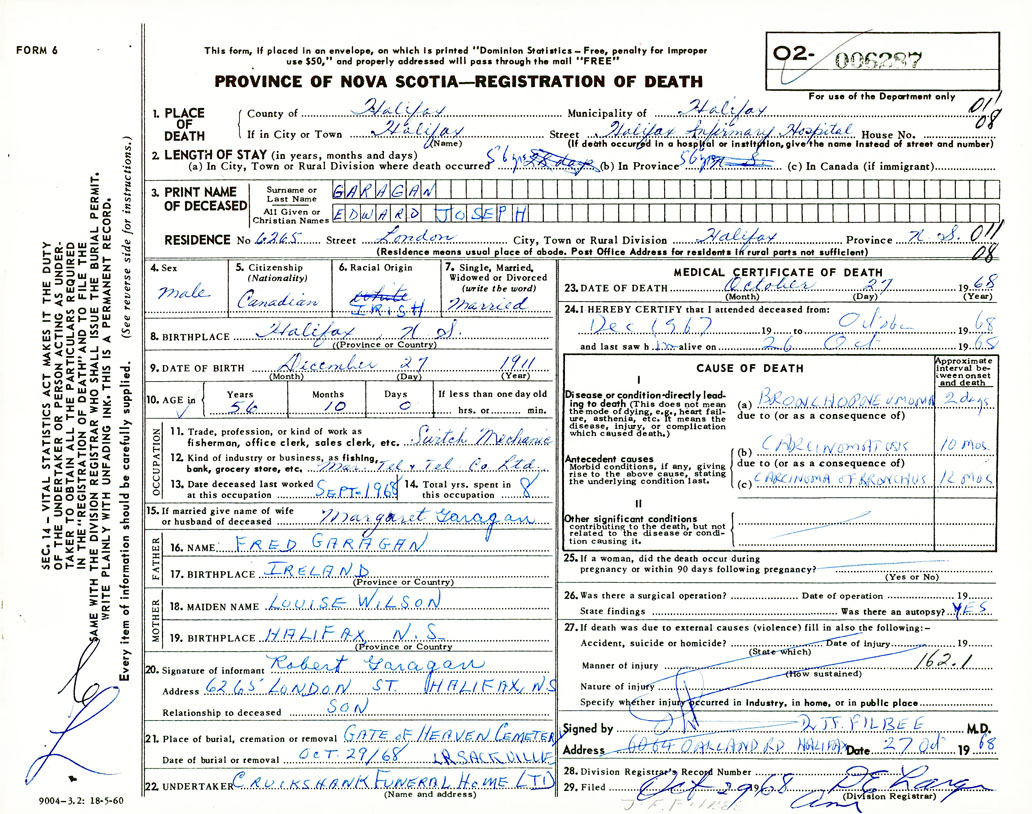 FORM 6
This form, if placed in an envelope, on which is printed "Dominion Statistics – Free, penalty for improper
use $50," and properly addressed will pass through the mail "FREE"
PROVINCE OF NOVA SCOTIA—REGISTRATION OF DEATH
O2- 006287
For use of the Department only
011
08
1. PLACE OF DEATH
County of Halifax Municipality of Halifax
If in City or Town Halifax Street Halifax Infirmary Hospital House No.
(Name) (If death occurred in a hospital or institution, give the name instead of street and number)
2. LENGTH OF STAY (in years, months and days)
(a) In City, Town or Rural Division where death occurred 56 yrs (b) In Province 56 yrs (c) In Canada (if immigrant)
3. PRINT NAME OF DECEASED
Surname or Last Name GARAGAN
All Given or Christian Names EDWARD JOSEPH
RESIDENCE No 6265 Street London City, Town or Rural Division Halifax Province N.S. 011
(Residence means usual place of abode. Post Office Address for residents in rural parts not sufficient) 08
4. Sex
Male
5. Citizenship
(Nationality)
Canadian
6. Racial Origin
White
IRISH
7. Single, Married, Widowed or Divorced
(write the word)
Married
8. BIRTHPLACE Halifax, N.S.
(Province or Country)
9. DATE OF BIRTH December 27 1911
(Month) (Day) (Year)
10. AGE in
Years 56
Months 10
Days 0
If less than one day old
hrs. or min.
OCCUPATION
11. Trade, profession, or kind of work as
fisherman, office clerk, sales clerk, etc. Switch Mechanic
12. Kind of industry or business, as fishing,
bank, grocery store, etc. Mar. Tel & Tel Co Ltd
13. Date deceased last worked
at this occupation SEPT-1968
14. Total yrs. spent in
this occupation 8
15. If married give name of wife
or husband of deceased Margaret Garagan
FATHER
16. NAME FRED GARAGAN
17. BIRTHPLACE IRELAND
(Province or Country)
MOTHER
18. MAIDEN NAME LOUISE WILSON
19. BIRTHPLACE HALIFAX, N.S
(Province or Country)
20. Signature of informant Robert Garagan
Address 6265 LONDON ST. HALIFAX, NS
Relationship to deceased SON
21. Place of burial, cremation or removal GATE OF HEAVEN CEMETERY
Date of burial or removal OCT. 29/68 LR SACKVILLE
22. UNDERTAKER CRUIKSHANK FUNERAL HOME LTD
(Name and address)
MEDICAL CERTIFICATE OF DEATH
23. DATE OF DEATH October 27 1968
(Month) (Day) (Year)
24. I HEREBY CERTIFY that I attended deceased from:
Dec 1967 19 to October 1968
and last saw him alive on 26 Oct 1968
CAUSE OF DEATH
Approximate interval between onset and death
I
Disease or condition directly leading to death (This does not mean the mode of dying, e.g., heart failure, asthenia, etc. It means the disease, injury, or complication which caused death.)
(a) BRONCHOPNEUMONIA 2 days
due to (or as a consequence of)
Antecedent causes
Morbid conditions, if any, giving rise to the above cause, stating the underlying condition last.
(b) CARCINOMATOSIS 10 mos.
due to (or as a consequence of)
(c) CARCINOMA OF BRONCHUS 12 mos
II
Other significant conditions
contributing to the death, but not related to the disease or condition causing it.
25. If a woman, did the death occur during
pregnancy or within 90 days following pregnancy?
(Yes or No)
26. Was there a surgical operation? Date of operation 19
State findings Was there an autopsy? YES
27. If death was due to external causes (violence) fill in also the following:–
Accident, suicide or homicide? Date of injury 19
(State which)
Manner of injury 162.1
(How sustained)
Nature of injury
Specify whether injury occurred in industry, in home, or in public place
Signed by D. J.F. FILBEE M.D.
Address 6064 OAKLAND RD HALIFAX Date 27 Oct 1968
28. Division Registrar's Record Number
29. Filed Oct 29 1968
(Division Registrar)
SEC. 14 – VITAL STATISTICS ACT MAKES IT THE DUTY
OF THE UNDERTAKER OR PERSON ACTING AS UNDER-
TAKER TO OBTAIN ALL THE PARTICULARS REQUIRED
IN THE "REGISTRATION OF DEATH" AND TO FILE THE
SAME WITH THE DIVISION REGISTRAR WHO SHALL ISSUE THE BURIAL PERMIT.
WRITE PLAINLY WITH UNFADING INK. THIS IS A PERMANENT RECORD.
Every item of information should be carefully supplied. (See reverse side for instructions.)
9004-3.2: 18-5-60